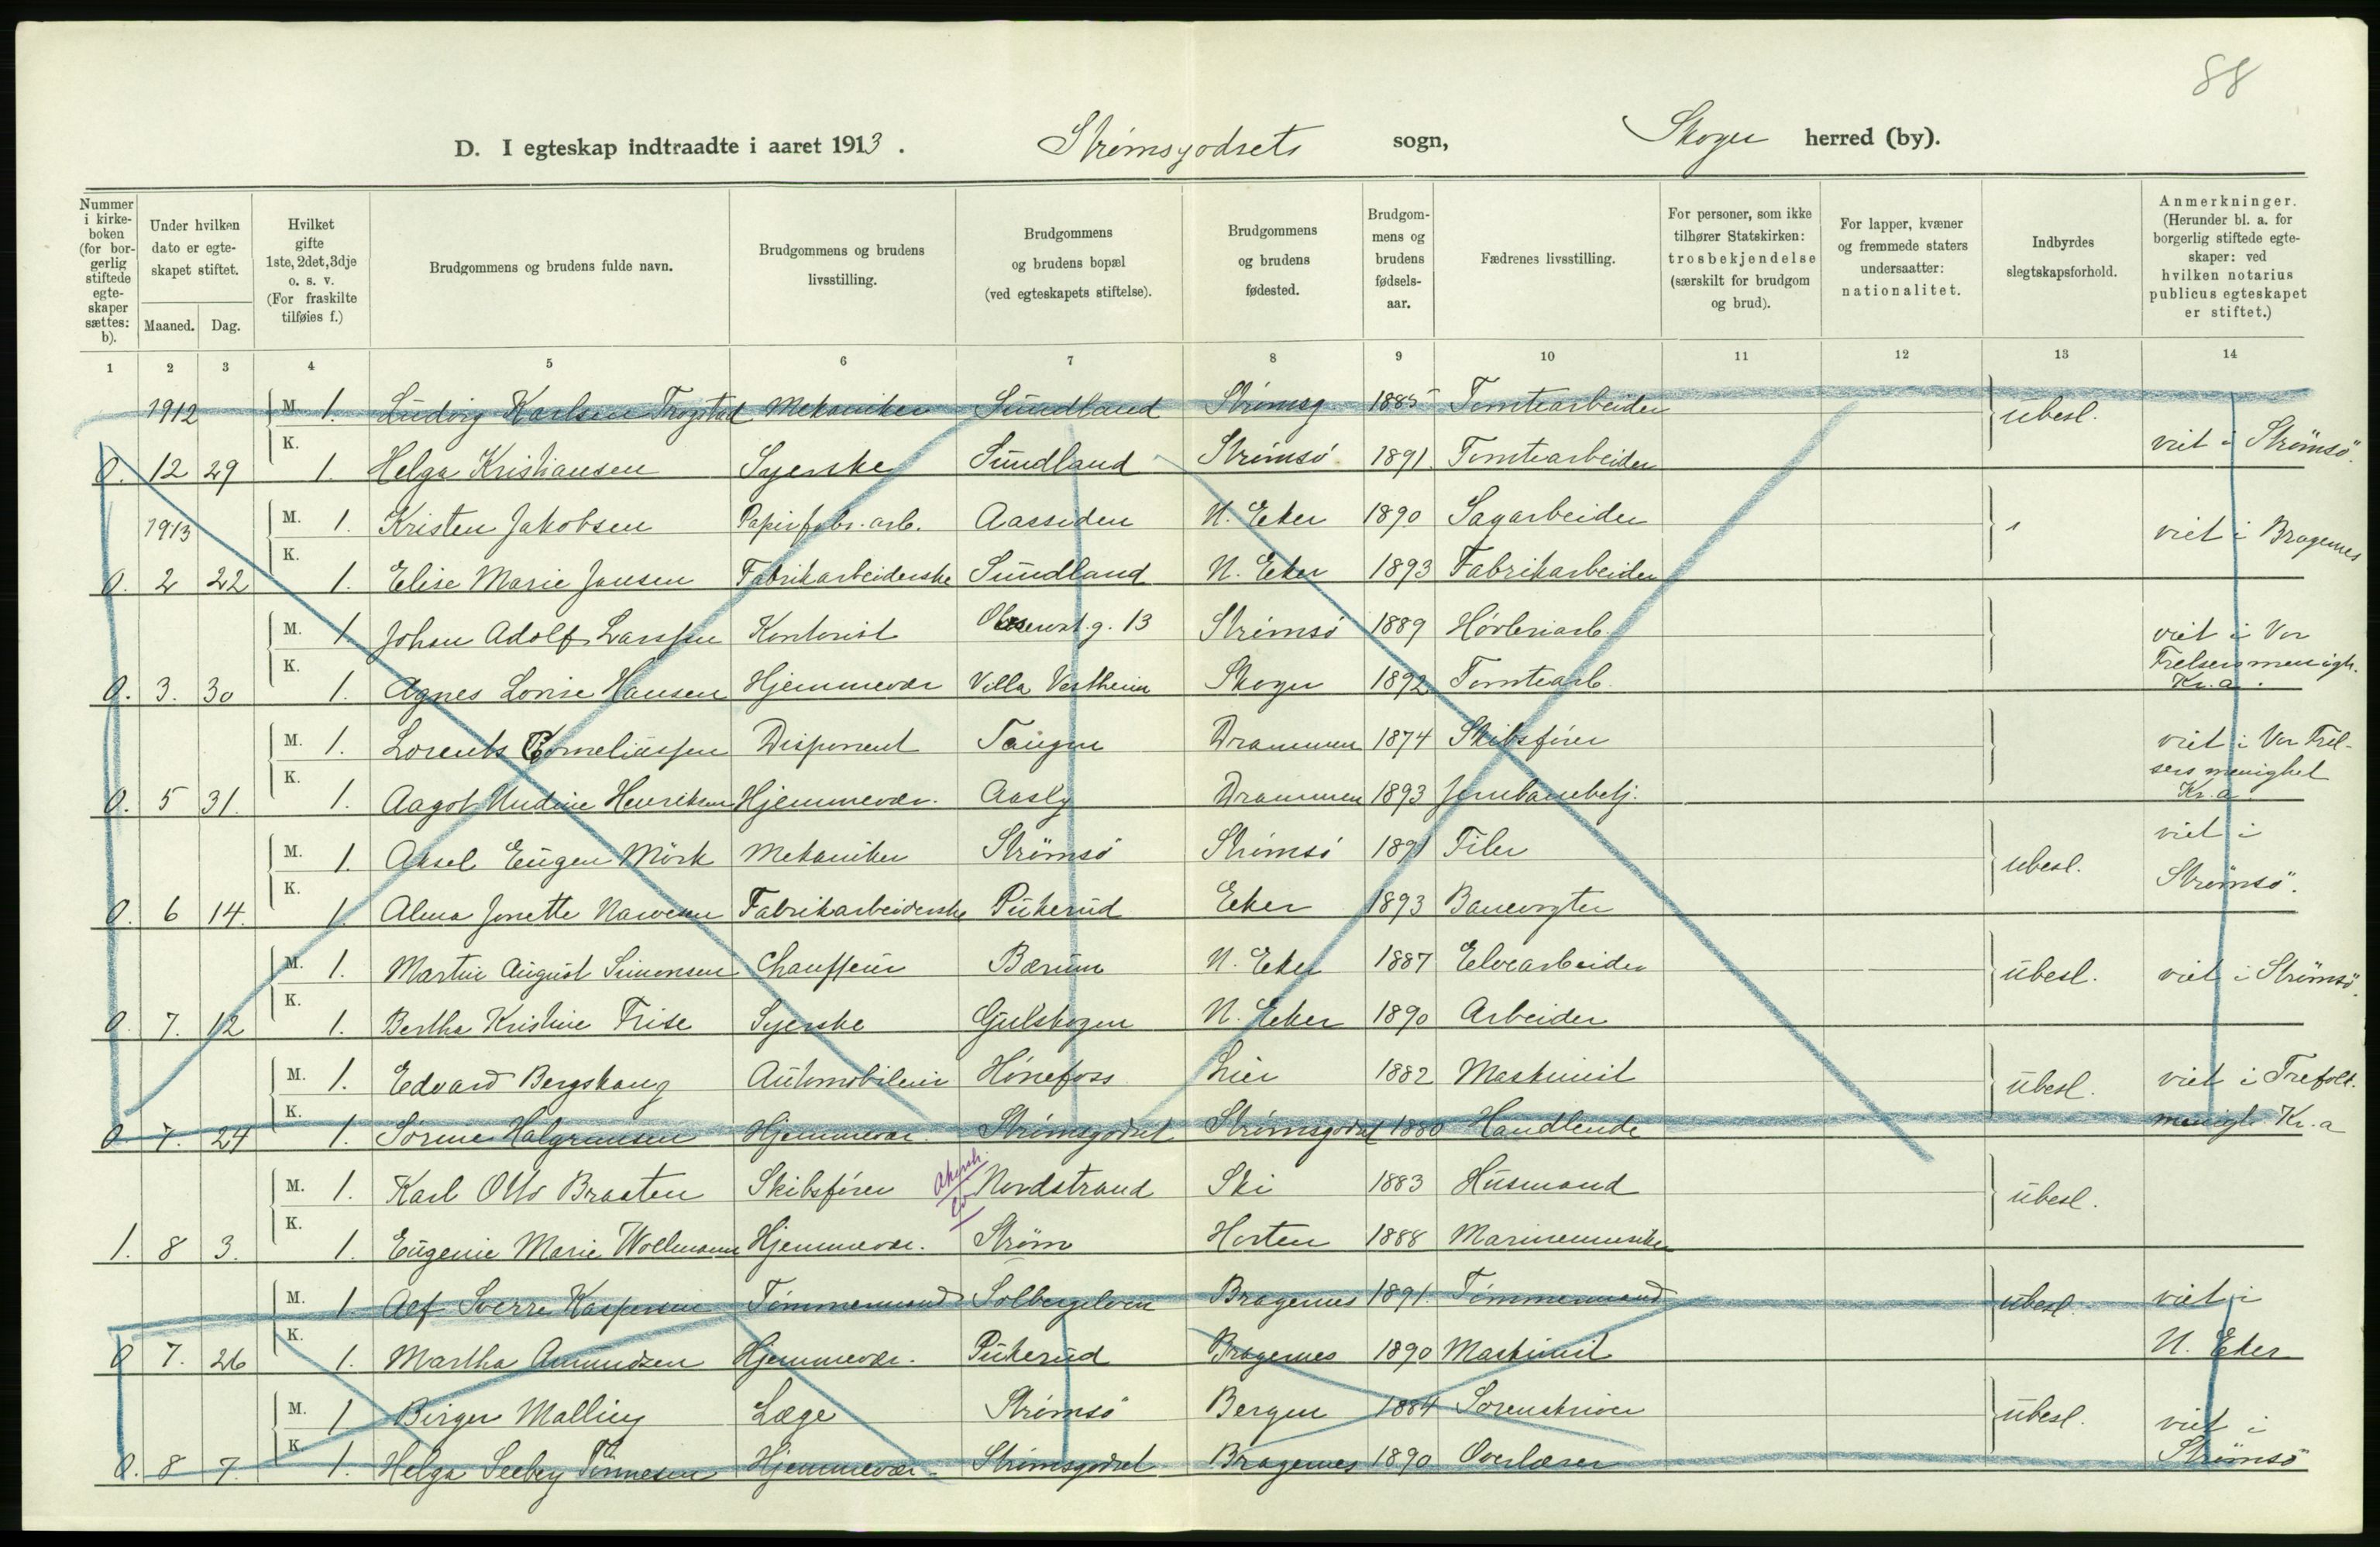 88
D. I egteskap indtraadte i aaret 1913. Strømsgodsets sogn, Skoger herred (by).
Nummer i kirkeboken (for borgerlig stiftede egteskaper sættes: b).
Under hvilken dato er egteskapet stiftet.
Maaned. Dag.
Hvilket gifte 1ste, 2det, 3dje o. s. v. (For fraskilte tilføies f.)
Brudgommens og brudens fulde navn.
Brudgommens og brudens livsstilling.
Brudgommens og brudens bopæl (ved egteskapets stiftelse).
Brudgommens og brudens fødested.
Brudgommens og brudens fødselsaar.
Fædrenes livsstilling.
For personer, som ikke tilhører Statskirken: trosbekjendelse (særskilt for brudgom og brud).
For lapper, kvæner og fremmede staters undersaatter: nationalitet.
Indbyrdes slegtskapsforhold.
Anmerkninger. (Herunder bl. a. for borgerlig stiftede egteskaper: ved hvilken notarius publicus egteskapet er stiftet.)
1 2 3 4 5 6 7 8 9 10 11 12 13 14
1912 M. 1. Ludvig Karlsen Trogstad Mekaniker Sundland Strømsg 1885 Tomtearbeider ubesl.
0. 12 29 K. 1. Helga Kristiansen Syerske Sundland Strømsø 1891 Tomtearbeider viet i Strømsö.
1913 M. 1. Kristen Jakobsen Papirfabr. arb. Aassiden N. Eker 1890 Sagarbeider " viet i Bragernes
0. 2 22 K. 1. Elise Marie Jansen Fabrikarbeiderske Sundland N. Eker 1893 Fabrikarbeider
M. 1. Johan Adolf Larssen Kontorist 13 Strømsø 1889 Høvleriarb. viet i Vor
Frelsers menigh.
0. 3. 30 K. 1. Agnes Lovise Hansen Hjemmevær Villa Vestheim Skoger 1892 Tomtearb. Kr.a.
M. 1. Lorents Corneliussen Disponent Tangen Drammen 1874 Skibsfører viet i Vor Frel-
sers menighet
0. 5 31. K. 1. Aagot Undine Henriksen Hjemmevær. Aasly Drammen 1893 Jernbanebetj. Kr.a.
M. 1. Aksel Eugen Mörk Mekaniker Strömsö Strømsø 1891 Filer ubesl. viet i
0. 6 14. K. 1. Alma Jonette Narvesen Fabrikarbeiderske Pukerud Eker 1893 Banevogter Strømsö.
M. 1. Martin August Simonsen Chauffeur Bærum N. Eker 1887 Elvearbeider ubesl. viet i Strømsö.
0. 7. 12 K. 1. Bertha Kristine Frise Syerske Gulskogen N. Eker 1890 Arbeider
M. 1. Edvard Bergskaug Automobileier Hønefoss Lier 1882 Maskinist ubesl. viet i Trefold.
0. 7. 24 K. 1. Sørine Halgrimsen Hjemmevær. Strømsgodset Strømsgodset 1880 Handlende menigh. Kr.a
M. 1. Karl Otto Braaten Skibsfører Akersh. Nordstrand Ski 1883 Husmand ubesl.
1. 8 3. K. 1. Eugenie Marie Wollmann Hjemmevær. Strøm Horten 1888 Marinemusiker
M. 1 Alf Sverre Kaspersen Tømmermand Solbergelven Bragernes 1891. Tømmermand ubesl. viet i
0 7. 26 K. 1. Martha Amundsen Hjemmevær. Pukerud Bragernes 1890 Maskinist N. Eker
M. 1 Birger Malling Læge Strømsø Bergen 1884 Sorenskriver ubesl. viet i
0. 8 7. K. 1. Helga Seeberg Tönnesen Hjemmevær. Strømsgodset Bragernes 1890 Overlærer Strømsö